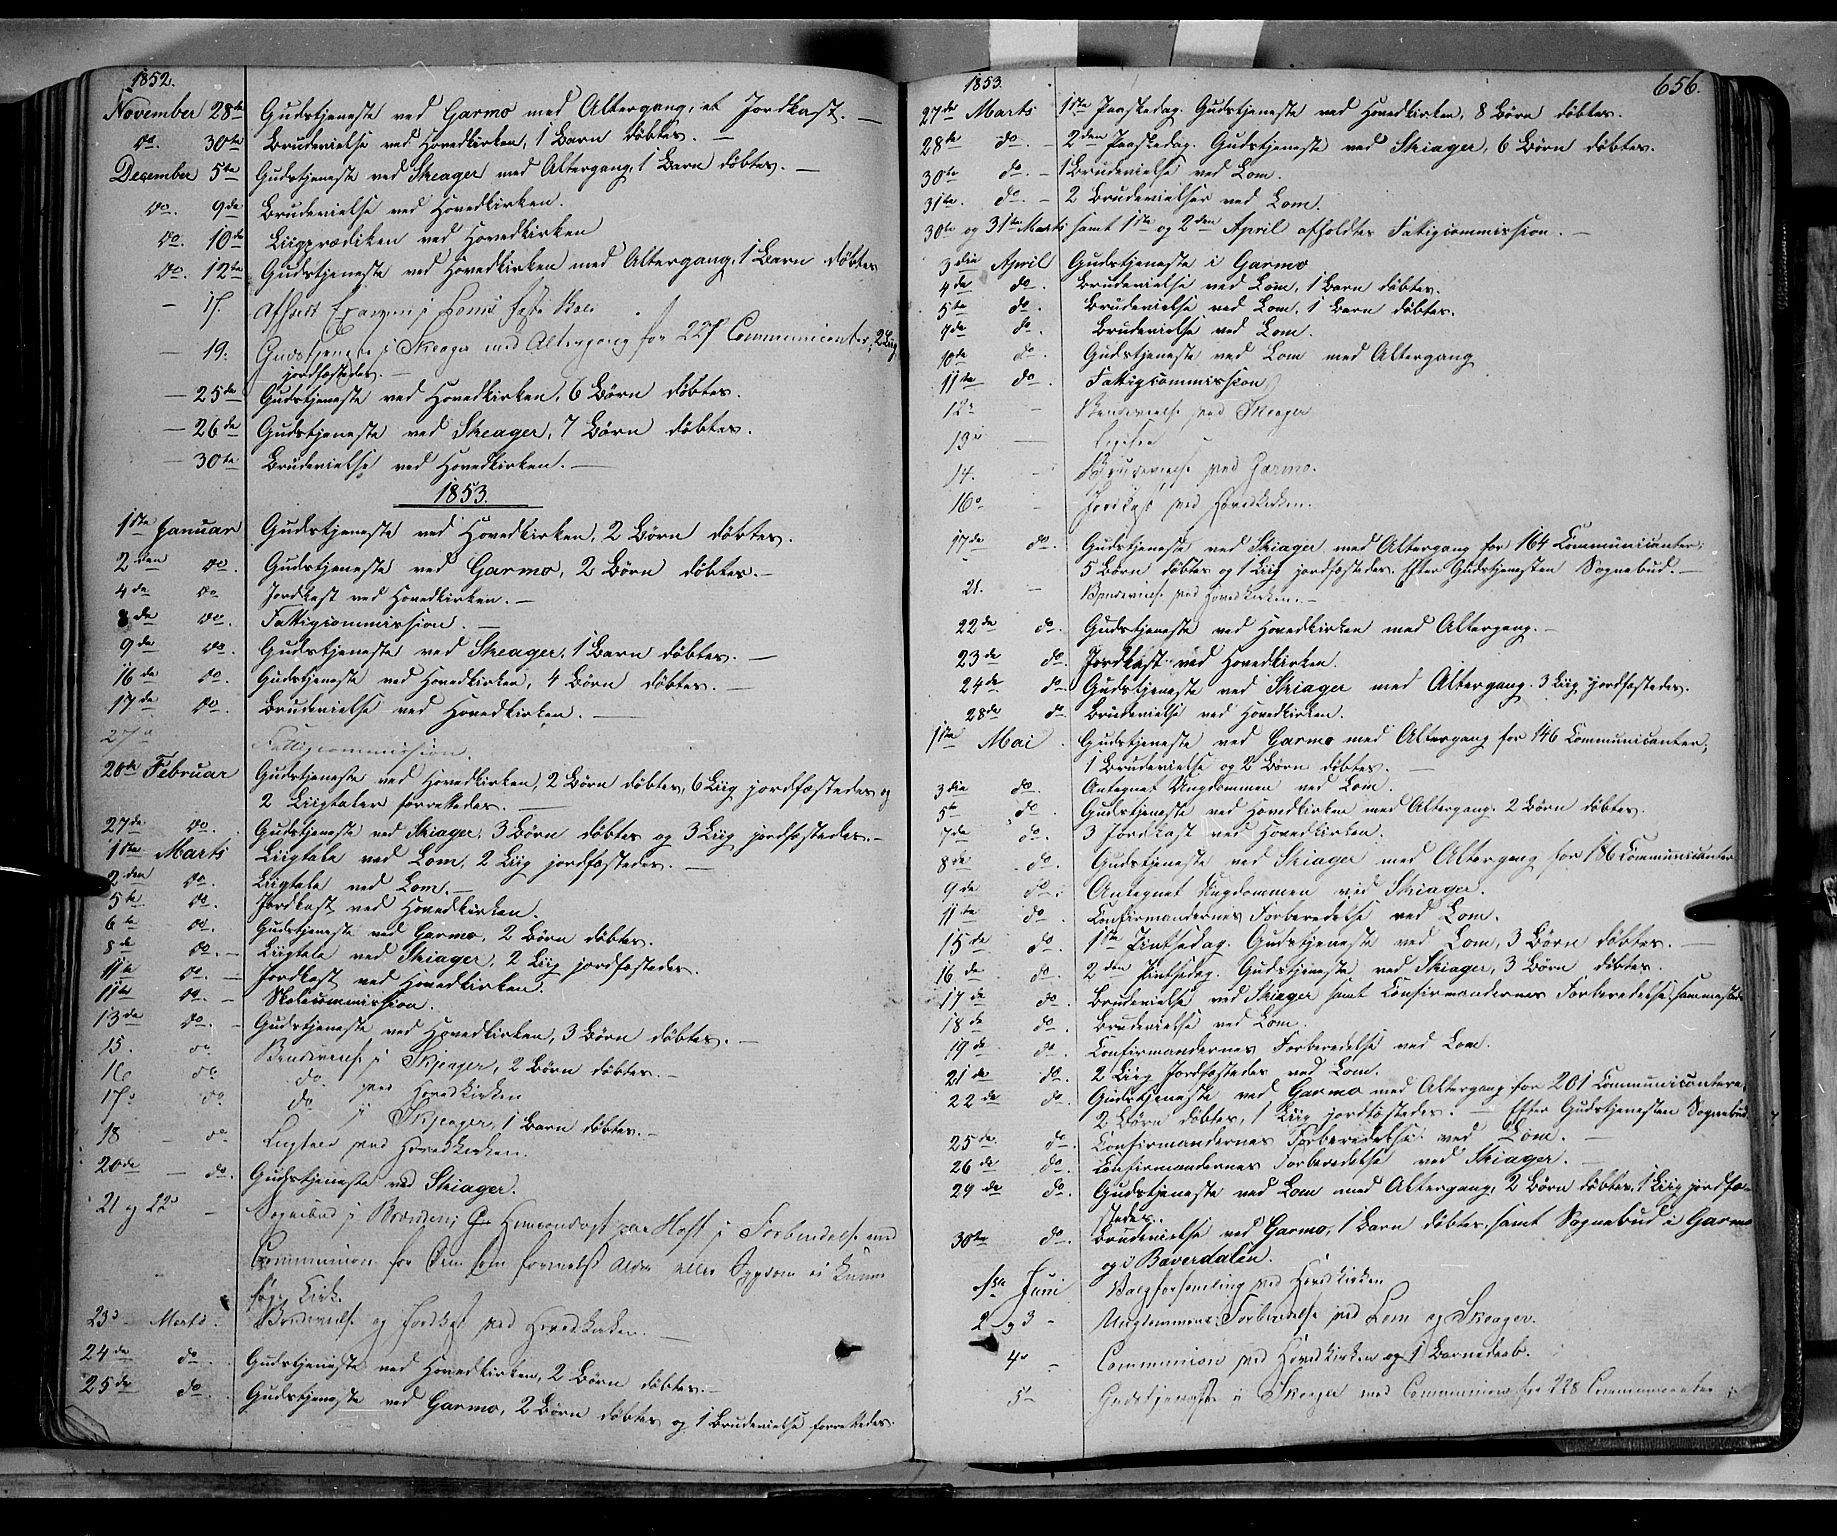 1852.
November 28de Gudstjeneste ved Garmo med Altergang, et Jordkast. —
do. 30te Brudevielse ved Hovedkirken, 1 Barn døbtes. —
December 5te Gudstjeneste ved Skeager med Altergang, 1 Barn døbtes. —
do. 9de Brudevielse ved Hovedkirken.
do. 10de Liigprædiken ved Hovedkirken
do. 12te Gudstjeneste ved Hovedkirken med Altergang, 1 Barn døbtes
— 17. Afholdt Examen i Loms faste Skole
— 19. Gudstjeneste i Skeager med Altergang for 227 Communicanter, 2 Liig
jordfæstedes. —
— 25de Gudstjeneste ved Hovedkirken, 6 Børn døbtes.
— 26de Gudstjeneste ved Skeager, 7 Børn døbtes.
— 30te Brudevielse ved Hovedkirken. —
1853.
1ste Januar Gudstjeneste ved Hovedkirken, 2 Børn døbtes.
2den do. Gudstjeneste ved Garmo, 2 Børn døbtes. —
4de do Jordkast ved Hovedkirken. —
8de do. Fattigcommission. —
9de do. Gudstjeneste ved Skeager, 1 Barn døbtes. —
16de do. Gudstjeneste ved Hovedkirken, 4 Børn døbtes. —
17de do. Brudevielse ved Hovedkirken. —
27de Fattigcommission.
20de Februar Gudstjeneste ved Hovedkirken, 2 Børn døbtes, 6 Liig jordfæstedes og
2 Liigtaler forrettedes. —
27de do. Gudstjeneste ved Skiager, 3 Børn døbtes og 3 Liig jordfæstedes. —
1ste Marts Liigtale ved Lom, 2 Liig jordfæstedes. —
2den do. Liigtale ved Lom. —
5te do. Jordkast ved Hovedkirken.
6te do. Gudstjeneste ved Garmo, 2 Børn døbtes.
8de do. — Liigtale ved Skiager, 2 Liig jordfæstedes.
11te do. — Jordkast ved Hovedkirken.
11te do. — Skolecommission.
13de do. — Gudstjeneste ved Hovedkirken, 3 Børn døbtes. —
15. do Brudevielse i Skjeager, 2 Børn døbtes. —
16 do do. ved Hovedkirken
17. do do i Skjeager, 1 Barn døbtes. —
18 — do Liigtale ved Hovedkirken.
20de — do. Gudstjeneste ved Skiager.
21 og 22de — Sognebud i
Communion for Dem som formedelst Alder eller Sygdom ei kunne
søge Kirke.
23de Marts. Brudevielse og Jordkast ved Hovedkirken. —
24de do. Gudstjeneste ved Hovedkirken, 2 Børn døbtes. —
25de do. Gudstjeneste ved Garmo, 2 Børn døbtes og 1 Brudevielse forrettedes.
1853. 656.
27de Marts 1ste Paaskedag. Gudstjeneste ved Hovedkirken, 8 Børn døbtes.
28de do. — 2den Paaskedag. Gudstjeneste ved Skiager, 6 Børn døbtes.
30te do. — 1 Brudevielse ved Lom.
31te. do. — 2 Brudevielser ved Lom.
30te og 31te Marts samt 1ste og 2den April afholdtes Fattigcommission. —
3die April Gudstjeneste i Garmo
4de do. Brudevielse ved Lom, 1 Barn døbtes.
5te do. Brudevielse ved Lom, 1 Barn døbtes.
7de do. Brudevielse ved Lom.
10de do. Gudstjeneste ved Lom med Altergang
11te do. Fattigcommission
12. — Brudevielse ved Skeager
13de —
14. — Brudevielse ved Garmo.
16de — Jordkast ved Hovedkirken.
17de do. Gudstjeneste ved Skiager med Altergang for 164 Communicanter;
5 Børn døbtes og 1 Liig jordfæstedes. Efter Gudstjenesten Sognebud. —
21. — Brudevielse ved Hovedkirken. —
22de do. Gudstjeneste ved Hovedkirken med Altergang. —
23de do. Jordkast ved Hovedkirken.
24de do. Gudstjeneste ved Skiager med Altergang. 3 Liig jordfæstedes.
28de do. Brudevielse ved Hovedkirken.
1ste Mai. Gudstjeneste ved Garmo med Altergang for 146 Communicanter,
1 Brudevielse og 2 Børn døbtes. —
3die do. Antegnet Ungdommen ved Lom.
5te do. Gudstjeneste ved Hovedkirken med Altergang. 2 Børn døbtes.
7de do. 3 Jordkast ved Hovedkirken.
8de do. Gudstjeneste ved Skiager med Altergang for 186 Communicanter
9de do. Antegnet Ungdommen ved Skiager.
11te do. Confirmandernes Forberedelse ved Lom.
15de do. 1ste Pintsedag. Gudstjeneste ved Lom, 3 Børn døbtes. —
16de do. 2den Pintsedag. Gudstjeneste ved Skiager, 3 Børn døbtes.
17de do. Brudevielse ved Skiager samt Confirmandernes Forberedelse sammesteds
18de do. Brudevielse ved Lom.
19de do. Confirmandernes Forberedelse ved Lom.
21de do. 2 Liig Jordfæstedes ved Lom.
22de do. Gudstjeneste ved Garmo med Altergang for 201 Communicantere,
2 Børn døbtes, 1 Liig jordfæstedes. — Efter Gudstjenesten Sognebud
25de do. Confirmandernes Forberedelse ved Lom. —
26de do. Confirmandernes Forberedelse ved Skiager. —
29de do. Gudstjeneste ved Lom med Altergang, 2 Børn døbtes, 1 Liig jordfæ-
stedes.
30te do. Brudevielse ved Garmo, 1 Barn døbtes, samt Sognebud i Garmo
og i Bæverdalen.
1ste Juni Valgforsamling ved Hovedkirken
2 og 3 — Ungdommens Forberedelse ved Lom og Skeager.
4de — Communion ved Hovedkirken og 1 Barnedaab.
5 — Gudstjeneste i Skeager med Communion for 228 Communicanter